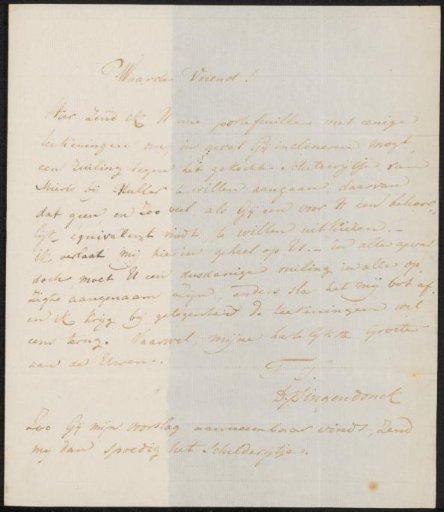 Waarde Vriend!
Hier zend ik U eene portefeuille met eenige
teekeningen om, in geval Gij inclineren mogt,
een ruiling tegen het gekochte Schilderijtje van
Mieris bij Muller te willen aangaan, daarvan
dat geen en zoo veel als Gij een voor U een behoor-
lijk equivalent vindt, te willen uitkiezen. —
Ik verlaat mij hierin geheel op U. — In alle geval
doch moet U een dusdanige ruiling in alle op-
zigte aangenaam zijn, anders sla het mij bot af,
en ik krijg bij gelegenheid de teekeningen wel
eens terug. Vaarwel, mijne hartelijkste Groete
aan de Uwen.
T. T.
Singendonck
Zoo Gij mijn voorslag aanneembaar vindt, zend
my dan spoedig het Schilderijtje.